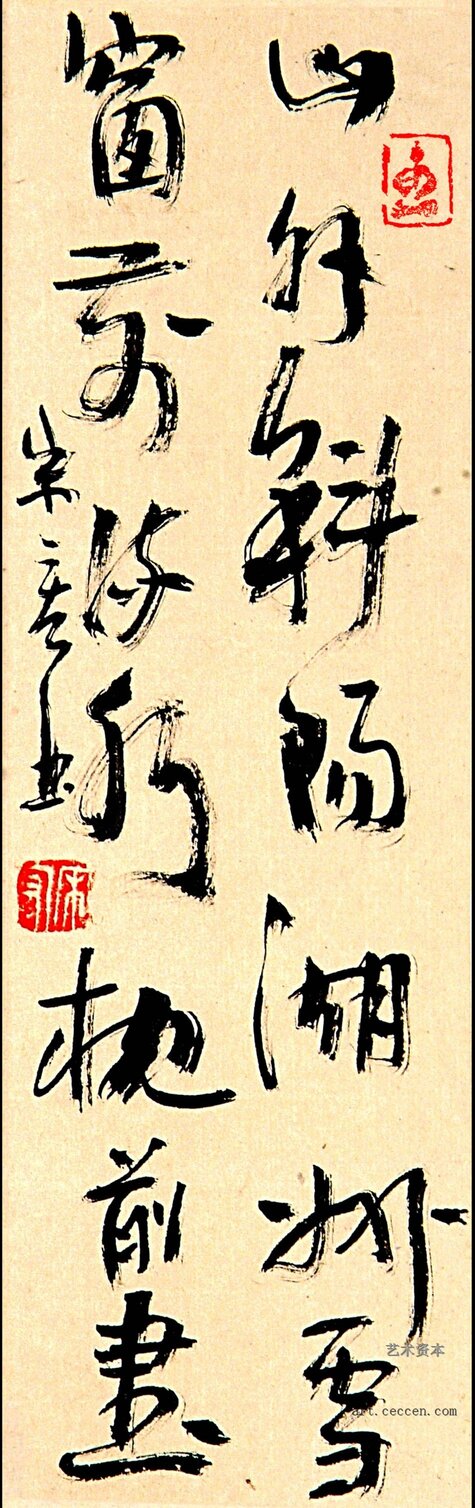 山外斜陽湖外雪
窗前流水枕前書
艺术资本
art.ceccen.com